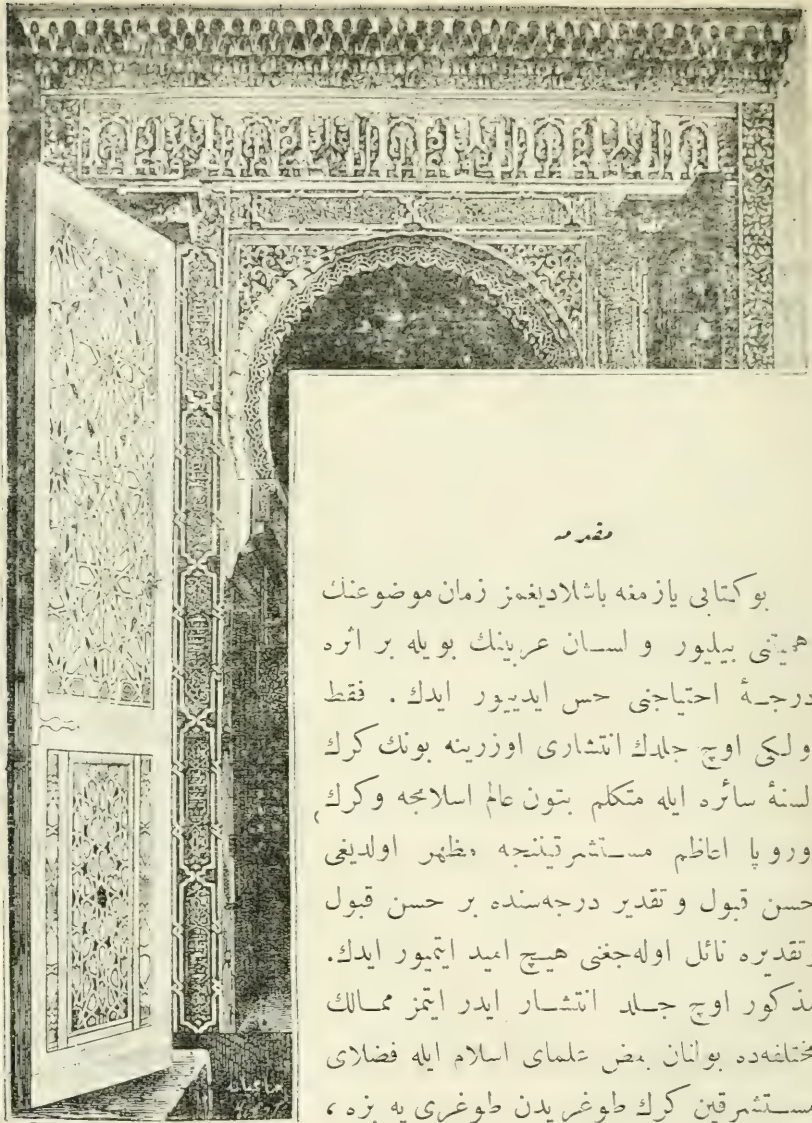 مقدمه
بو كتابی یازمغه باشلادیغمز زمان موضوعنك
همیتنی بیلیور و لسان عربینك بویله بر اثره
درجۀ احتیاجنی حس ایدییور ایدك . فقط
ولكی اوچ جلدك انتشاری اوزرینه بونك كرك
لسنۀ سائره ایله متكلم بتون عالم اسلامجه وكرك
وروپا اعاظم مستشرقیننجه مظهر اولدیغی
حسن قبول و تقدیر درجه‌سنده بر حسن قبول
وتقدیره نائل اوله‌جغنی هیچ امید ایتمیور ایدك.
مذكور اوچ جلد انتشار ایدر ایتمز ممالك
مختلفه‌ده بولنان بعض علمای اسلام ایله فضلای
مستشرقین كرك طوغریدن طوغری یه بزه ،